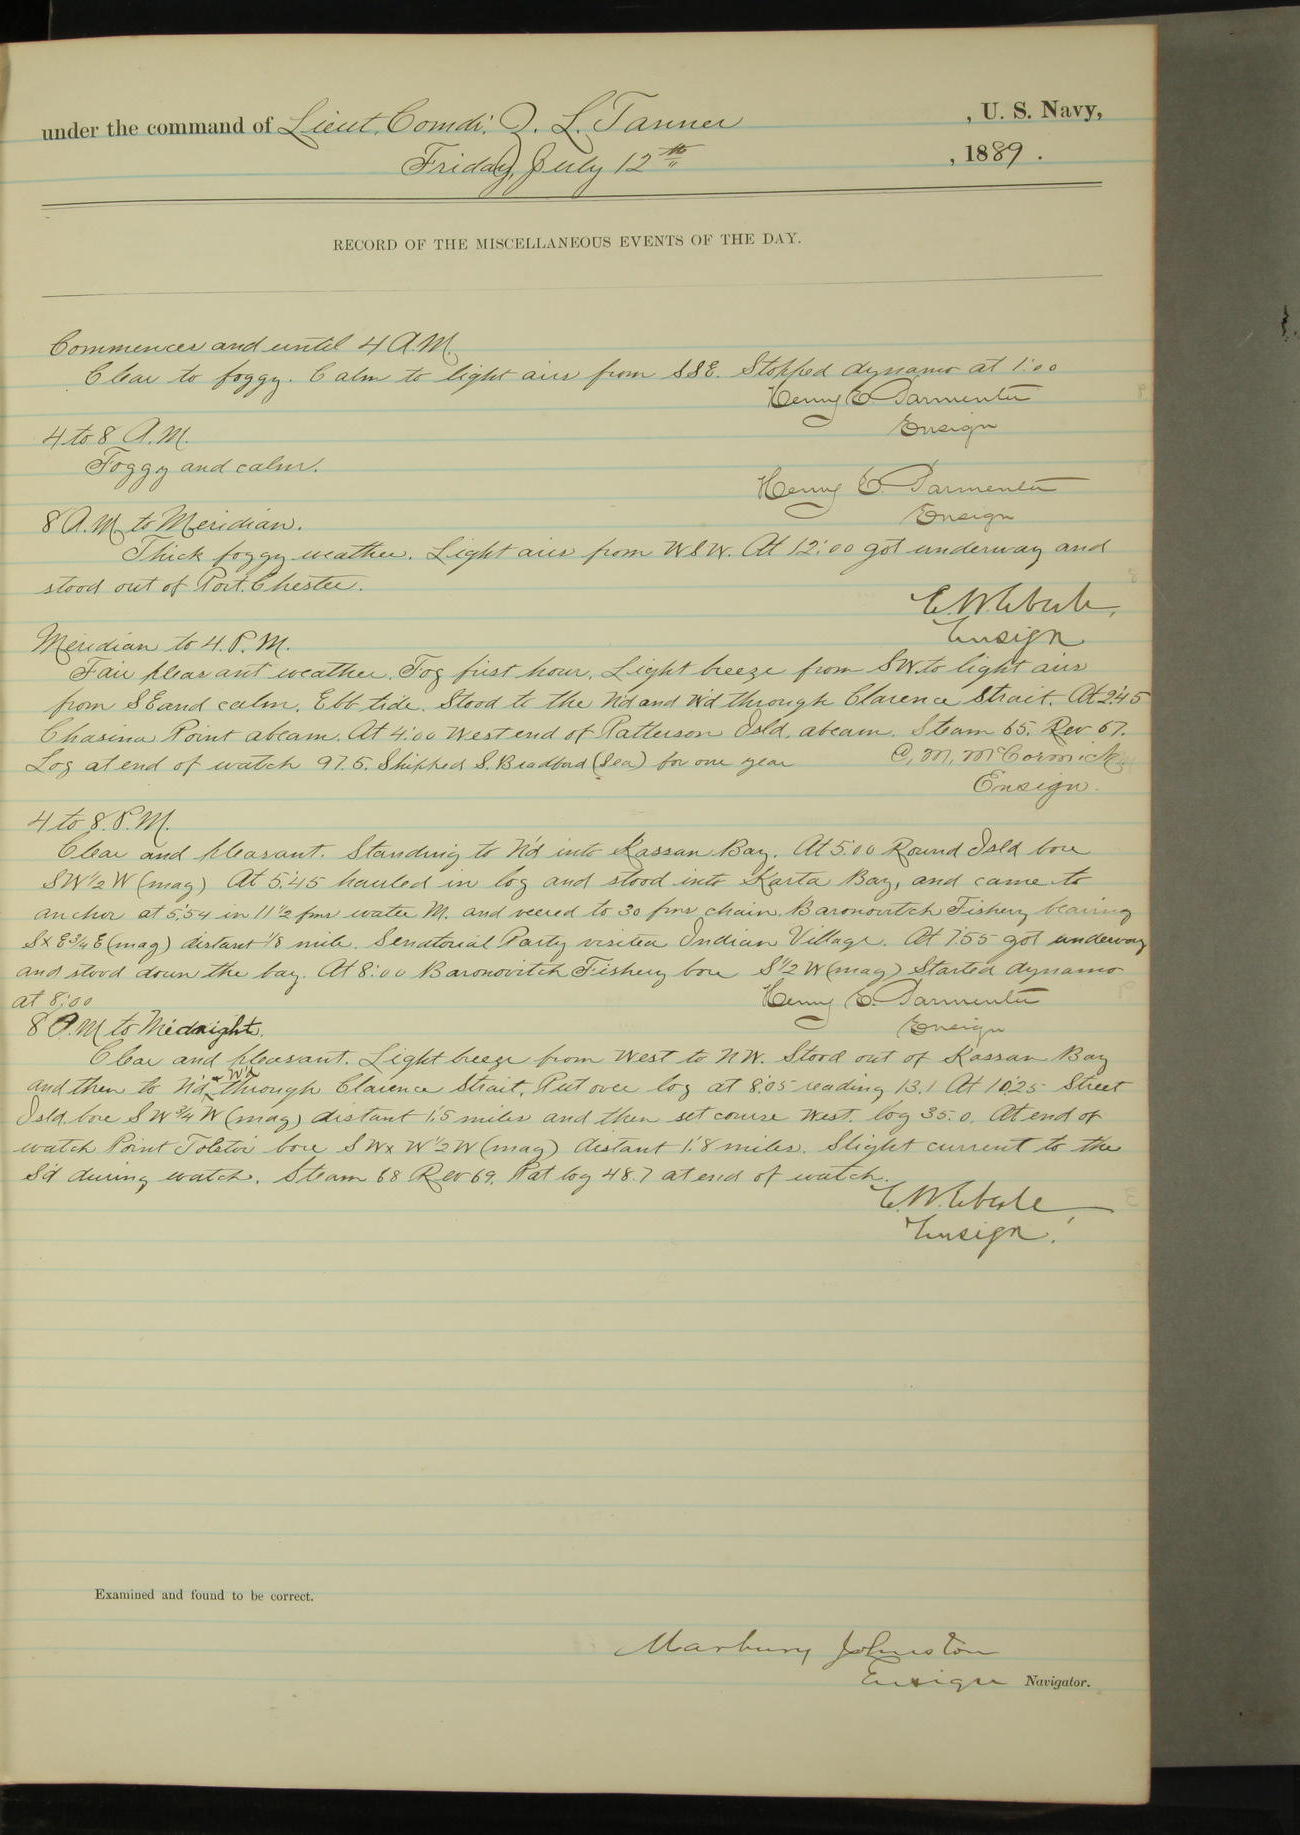 under the command of Lieut. Comdr. Z. L. Tanner , U. S. Navy,
Friday, July 12th , 1889 .
RECORD OF THE MISCELLANEOUS EVENTS OF THE DAY.
Commences and until 4 A.M.
Clear to foggy. Calm to light airs from SSE. Stopped dynamo at 1:00
Henry E. Parmenter
Ensign
4 to 8 A.M.
Foggy and calm.
Henry E. Parmenter
Ensign
8 A.M. to Meridian.
Thick foggy weather. Light airs from WSW. At 12:00 got underway and
stood out of Port Chester.
E. W. Eberle,
Ensign
Meridian to 4. P. M.
Fair pleasant weather. Fog first hour. Light breeze from SW. to light airs
from SE and calm. Ebb tide. Stood to the N'd and W'd through Clarence Strait. At 2:45
Chasina Point abeam. At 4:00 West end of Patterson Isld. abeam. Steam 65. Rev 67.
Log at end of watch 97.5. Shipped S. Bradford (Sea) for one year C, M, McCormick
Ensign.
4 to 8. P.M.
Clear and pleasant. Standing to N'd into Kassan Bay. At 5:00 Round Isld bore
SW 1/2 W (mag) At 5:45 hauled in log and stood into Karta Bay, and came to
anchor at 5:54 in 11 1/2 fms water M. and veered to 30 fms chain. Baronovitch Fishery bearing
SxE 3/4 E (mag) distant 1/8 mile. Senatorial Party visited Indian Village. At 7:55 got underway
and stood down the bay. At 8:00 Baronovitch Fishery bore S 1/2 W (mag) Started dynamo
at 8:00 Henry E. Parmenter
8 P.M to Midnight. Ensign
Clear and pleasant. Light breeze from West to NW. Stood out of Kassan Bay
and then to N'd & W'd through Clarence Strait. Put over log at 8:05 reading 13.1 At 10:25 Street
Isld. bore SW 3/4 W (mag) distant 1.5 miles and then set course West. log 35.0. At end of
watch Point Tolstoi bore SWxW 1/2 W (mag) distant 1.8 miles. Slight current to the
S'd during watch. Steam 68 Rev 69. Pat log 48.7 at end of watch.
E. W. Eberle
Ensign.
Examined and found to be correct.
Marbury Johnston
Ensign Navigator.